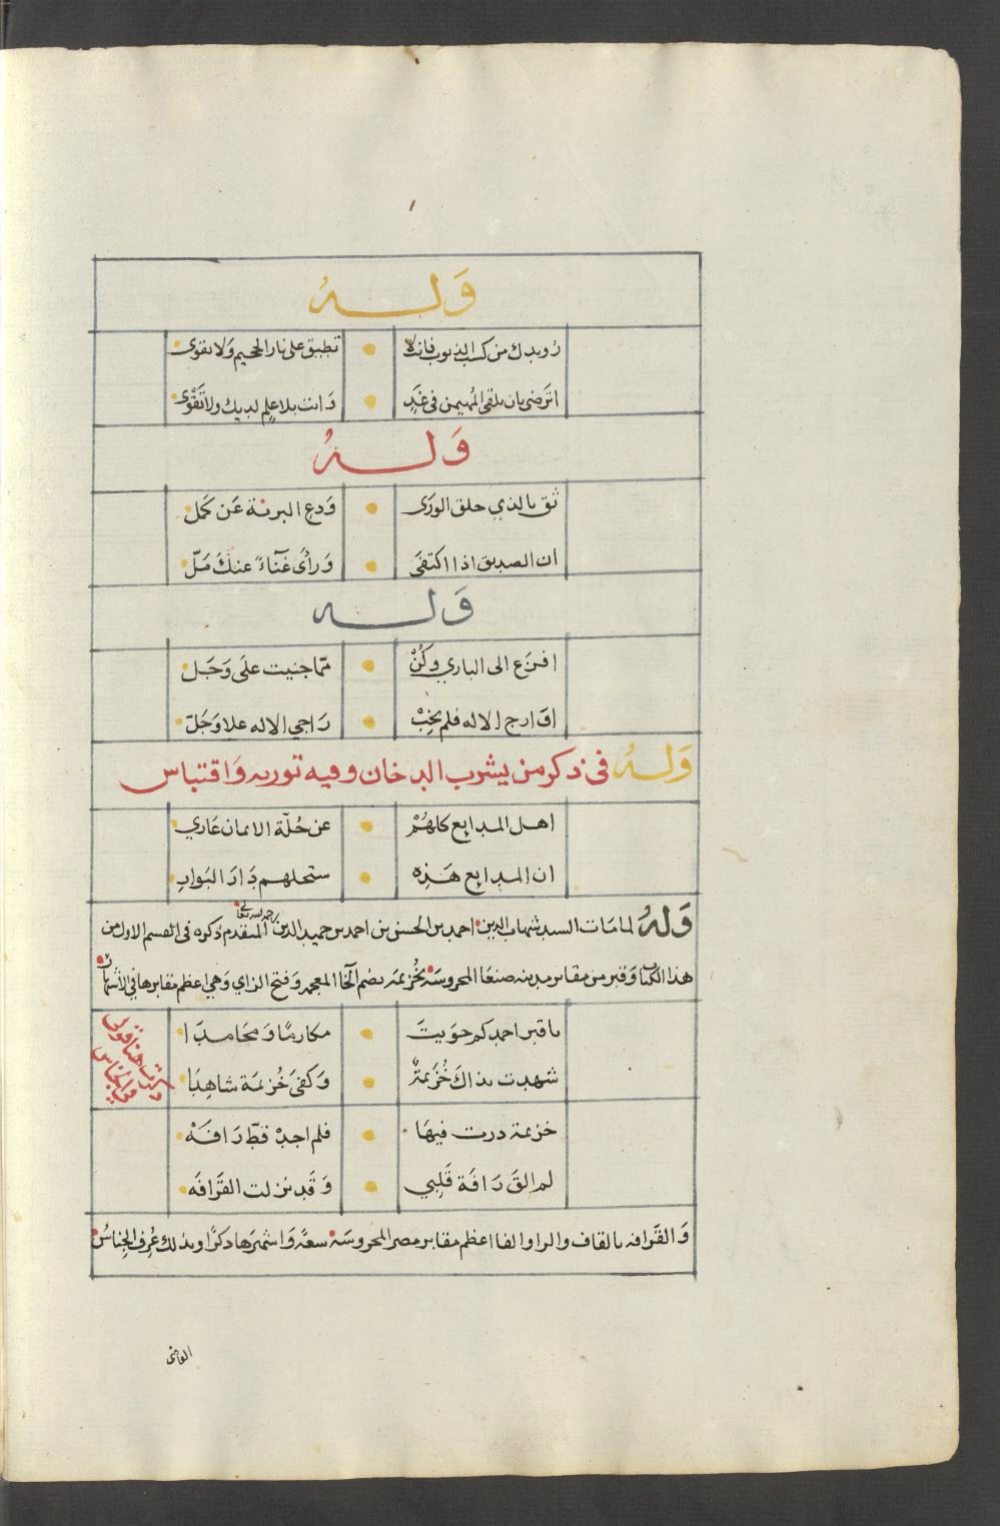 وَلـــهُ
رويدك من كسب الذنوب فانك لا • تطيق على نار الجحيم ولا تقوى
اترضى بان تلقى المهيمن في غَدٍ • وانت بلا علم لديك ولا تَقْوى
وَلـــهُ
ثق بالذي خلق الورَى • وَدع البرية عَن كَمَل
ان الصديق اذا اكتفَى • وَرأى غَنَآءً عنكَ مَلّ
وَلـــه
افزَع الى الباري وكُنْ • ممّا جنيت علَى وَجَل
وَارج الاله فلم يخِبْ • رَاجي الاله علا وَجَلّ
وَلـهُ في ذكر من يشرب الدخان وفيه تورية وَاقتباس
اهل المدايع كلهُمْ • عن حُلّة الايمان عَاري
ان المدايع هَذِه • ستحلهم دَارَ البَوارِ
وَلهُ لما مَات السيد شهاب الدين احمد بن الحسن بن احمد بن حميد الدين رحمه الله تعالى المتقدم ذكره في القسم الاول من
هذا الكتاب وَقبر من مقابر مدينة صنعَا المحروسَة بخُزيمَة بضم الخَا المعجمة وَفتح الزاي وَهي اعظم مقابرها في الأشهَات
يا قبر احمد كم حوَيتَ • مكارمًا وَمحَامدَا
شهدت بذاكَ خُزَيمةٌ • وَكفَى خُزيمَة شاهِدَا
خزيمة درت فيهَا • فلم اجدْ قطّ رَافَهْ
لم القَ رَافَة قَلبِي • وَقَد نزلت القَرَافَه
وَالقَرافة بالقاف والرا والفا اعظم مقابر مصر المحروسَة سعَة وَاشهرَها ذكرًا وبذلك عُرف الجِناسُ
القاضي